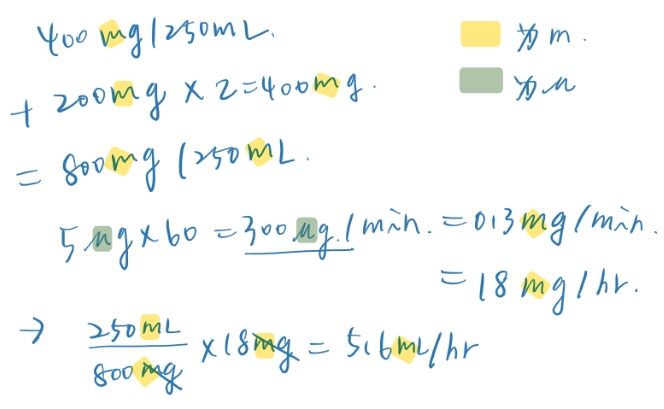 400mg/250mL.
为m.
+ 200mg × 2=400mg.
为μ
= 800mg/250mL.
5μg×60 = 300μg/min. = 0.3mg/min.
= 18mg/hr.
→ 250mL/800mg ×18mg = 5.6mL/hr